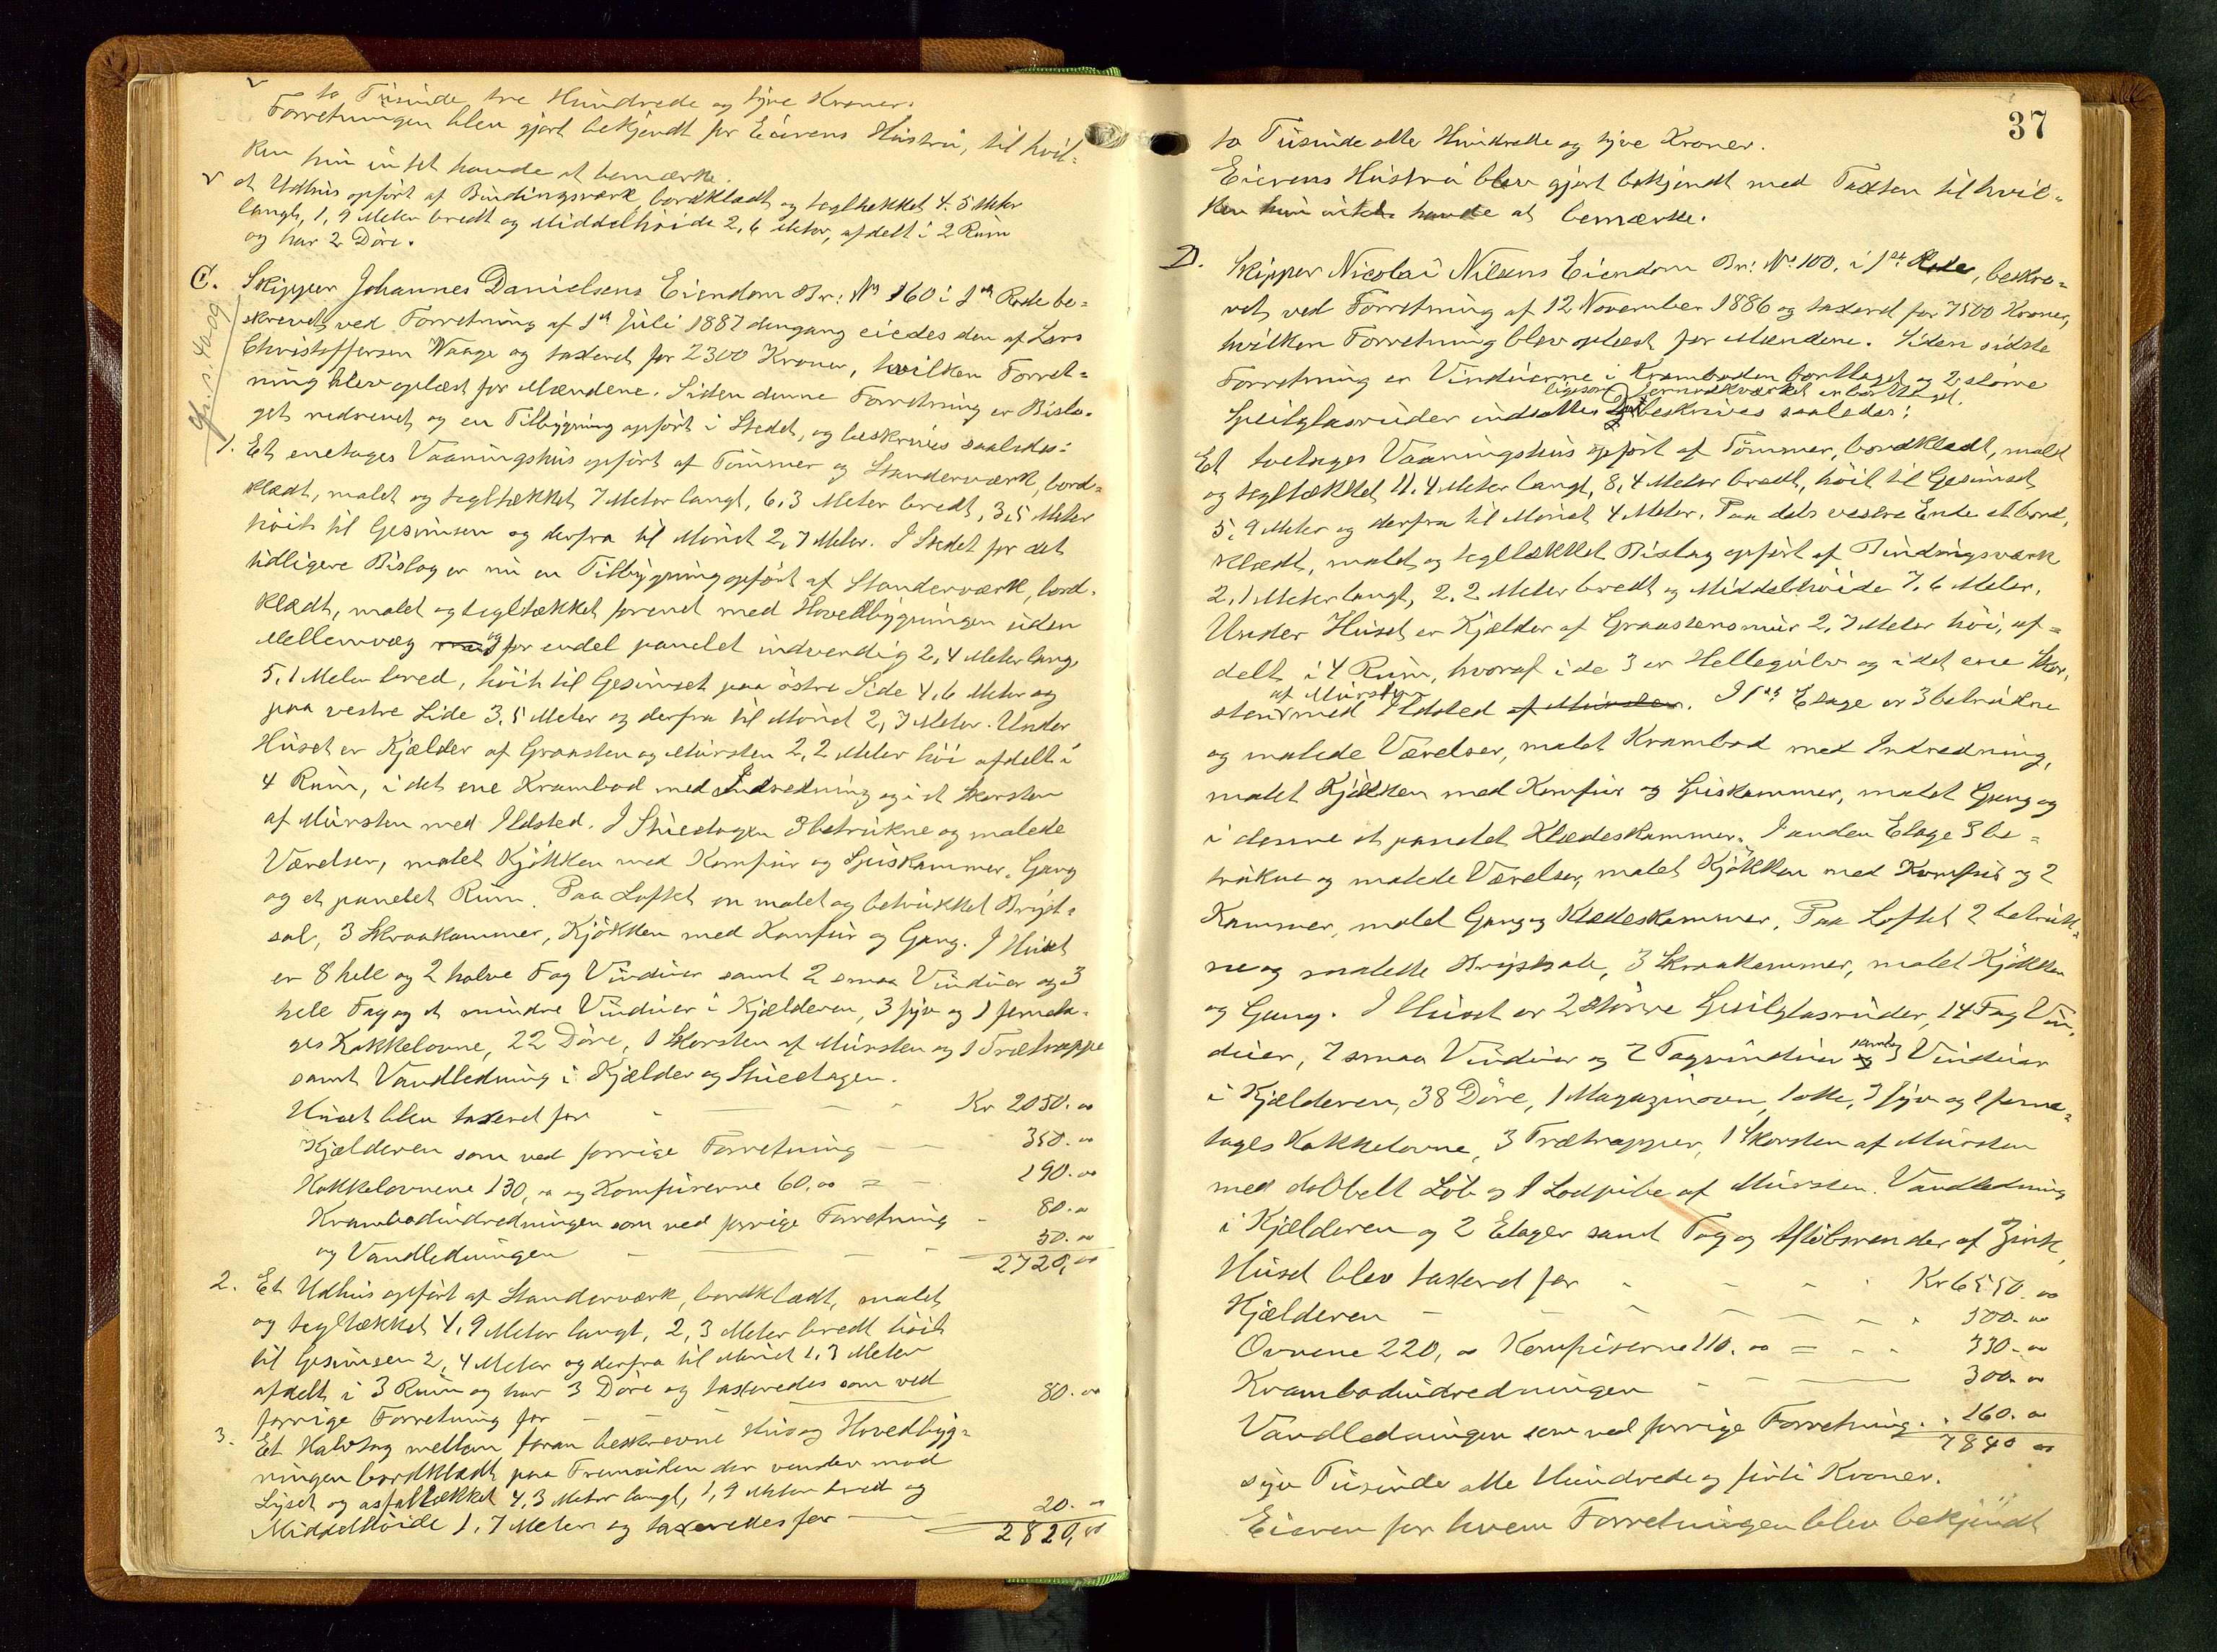 to Tusinde tre Hundrede og tyve Kroner.
Forretningen blev gjort bekjendt for Eierens Hustru, til hvil-
ken hun intet havde at bemærke.
et Udhus opført af Bindingsværk, bordklædt og teglhækket 4.5 Meter
langt, 1,9 Meter bredt og Middelhöide 2,6 Meter, afdelt i 2 Rum
og har 2 Döre.
C. Skipper Johannes Danielsens Eiendom Br: No 160 i 1ste Rode be-
skrevet ved Forretning af 1ste Juli 1887 dengang eiedes den af Lars
Christoffersen Waage og taxeret for 2300 Kroner, hvilken Forret-
ning blev oplæst for Mændene. Siden denne Forretning er Bisla-
get nedrevet og en Tilbygning opfört i Stedet, og beskrives saaledes:
1. Et enetages Vaaningshus opfört af Tömmer og Standerværk, bord-
klædt, malet og tegltækket 7 Meter langt, 6,3 Meter bredt, 3,5 Meter
höit til Gesimsen og derfra til Mönet 2,7 Meter. I Stedet for det
tidligere Bislag er nu en Tilbygning opfört af Standerværk, bord-
klædt, malet og tegltækket forenet med Hovedbygningen uden
Mellemvæg og for endel panelet indvendig 2,4 Meter lang,
5,1 Meter bred, höit til Gesimset paa östre Side 4,6 Meter og
paa vestre Side 3,5 Meter og derfra til Mönet 2,7 Meter. Under
Huset er Kjælder af Graasten og Mursten 2,2 Meter höi afdelt i
4 Rum, i det ene Krambod med Indredning og i et Skorsten
af Mursten med Ildsted. I Stueetagen 3 betrukne og malede
Værelser, malet Kjökken med Komfur og Spiskammer, Gang
og et panelet Rum. Paa Loftet en malet og betrukket Bryst-
sal, 3 Skraakammer, Kjökken med Komfur og Gang. I Huset
er 8 hele og 2 halve Fag Vinduer samt 2 smaa Vinduer og 3
hele Fag og et mindre Vinduer i Kjælderen, 3 fyr og 1 femeta-
ges Kakkelovne, 22 Döre, 1 Skorsten af Mursten og 1 Trætrappe
samt Vandledning i Kjælder og Stueetagen.
Huset blev taxeret for Kr 2050.00
Kjælderen som ved forrige Forretning 350.00
Kakkelovnene 130,00 og Komfurerne 60,00 = 190.00
Krambodindredningen som ved forrige Forretning 80.00
og Vandledningen 50.00
2720,00
2. Et Udhus opfört af Standerværk, bordklædt, malet
og tegltækket 4,9 Meter langt, 2,3 Meter bredt höit
til Gesimsen 2,4 Meter og derfra til Mönet 1,3 Meter
afdelt i 3 Rum og har 3 Döre og taxeredes som ved
forrige Forretning for 80.00
3. Et Halvtag mellem foran beskrevne Hus og Hovedbyg-
ningen bordklædt paa Fremsiden der vender mod
Lyset og asfalttækket 4,3 Meter langt, 1,9 Meter bredt og
Middelhöide 1,7 Meter og taxeredes for 20.00
2820,00
37
to Tusinde otte Hundrede og tyve Kroner.
Eierens Hustru blev gjort bekjendt med Taxten til hvil-
ken hun intet havde at bemærke.
D. Skipper Nicolai Nilsens Eiendom Br: No 100. i 1ste Rode, beskre-
vet ved Forretning af 12 November 1886 og taxeret for 7500 Kroner,
hvilken Forretning blev oplæst for Mændene. Siden sidste
Forretning er Vinduerne i Kramboden borttaget og 2 större
ligesom Jernudkværket er borttaget.
Speilglasruder indsattes og beskrives saaledes:
Et toetages Vaaningshus opfört af Tömmer, bordklædt, malet
og tegltækket 11,4 Meter langt, 8,4 Meter bredt, höit til Gesimset
5,9 Meter og derfra til Mönet 4 Meter. Paa dets vestre Ende et bord-
klædt, malet og tegltækket Bislag opfört af Bindingsværk
2,1 Meter langt, 2,2 Meter bredt og Middelhöide 7,6 Meter.
Under Huset er Kjælder af Graastensmur 2,7 Meter höi, af-
delt i 4 Rum, hvoraf i de 3 er Hellegulv og i det ene Skor-
af Mursten
sten med Ildsted af Mursten. I 1ste Etage er 3 betrukne
og malede Værelser, malet Krambod med Indredning,
malet Kjökken med Komfur og Spiskammer, malet Gang og
i denne et panelet Klædeskammer. I anden Etage 3 be-
trukne og malede Værelser, malet Kjökken med Komfur og 2
Kammer, malet Gang og Klædeskammer. Paa Loftet 2 betruk-
ne og malede Brystsale, 3 Skraakammer, malet Kjökken
og Gang. I Huset er 2 större Speilglasruder, 14 Fag Vin-
duer, 7 smaa Vinduer og 2 Tagvinduer samt 3 Vinduer
i Kjælderen, 38 Döre, 1 Magazinovn, 1 otte, 3 fyr og 2 feme-
tages Kakkelovne, 3 Trætrapper, 1 Skorsten af Mursten
med dobbelt Löb og 1 Lodpibe af Mursten. Vandledning
i Kjælderen og 2 Etager samt Tag og Aflöbsrender af Zink,
Huset blev taxeret for Kr 6550.00
Kjælderen 500.00
Ovnene 220,00 Komfurerne 110.00 = 330.00
Krambodindredningen 300.00
Vandledningen som ved forrige Forretning. 160.00
7840 00
syv Tusinde otte Hundrede og firti Kroner.
Eieren for hvem Forretningen blev bekjendt